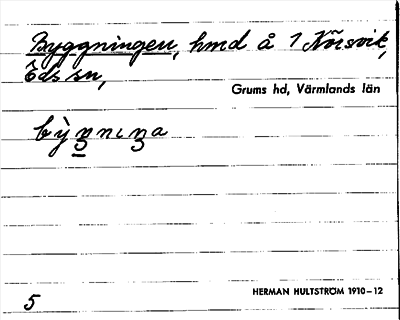 Byggningen, hmd å 1 Norsvik,
Eds sn,
Grums hd, Värmlands län
bỳgnıŋa
HERMAN HULTSTRÖM 1910–12
5